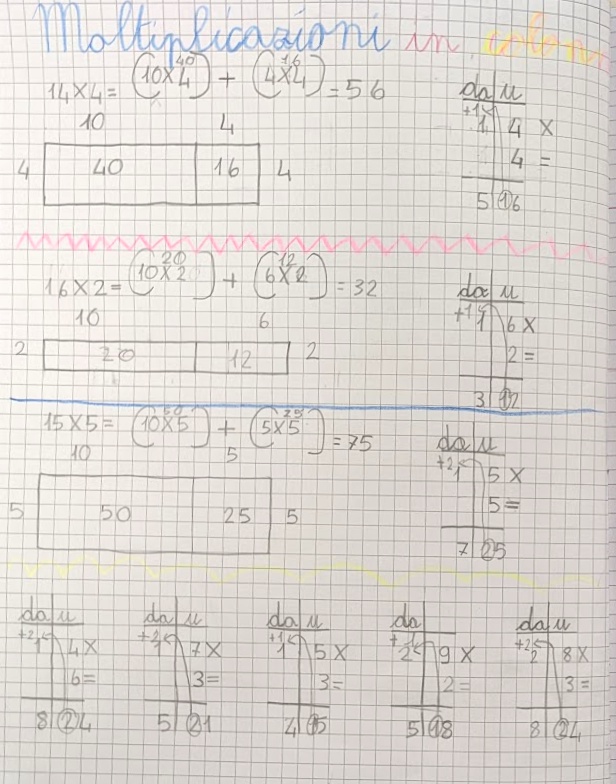 Moltiplicazioni in colon
14 X 4 = (10 X 4) 40 + (4 X 4) 16 = 56
10 4
4 40 16 4
da u
+1
1 4 X
4 =
5 16
16 X 2 = (10 X 2) 20 + (6 X 2) 12 = 32
10 6
2 20 12 2
da u
+1
1 6 X
2 =
3 12
15 X 5 = (10 X 5) 50 + (5 X 5) 25 = 75
10 5
5 50 25 5
da u
+2
1 5 X
5 =
7 25
da u da u da u da da u
+2 +2 +1 +1 +2
1 4 X 1 7 X 1 5 X 2 9 X 2 8 X
6 = 3 = 3 = 2 = 3 =
8 24 5 21 4 15 5 18 8 24